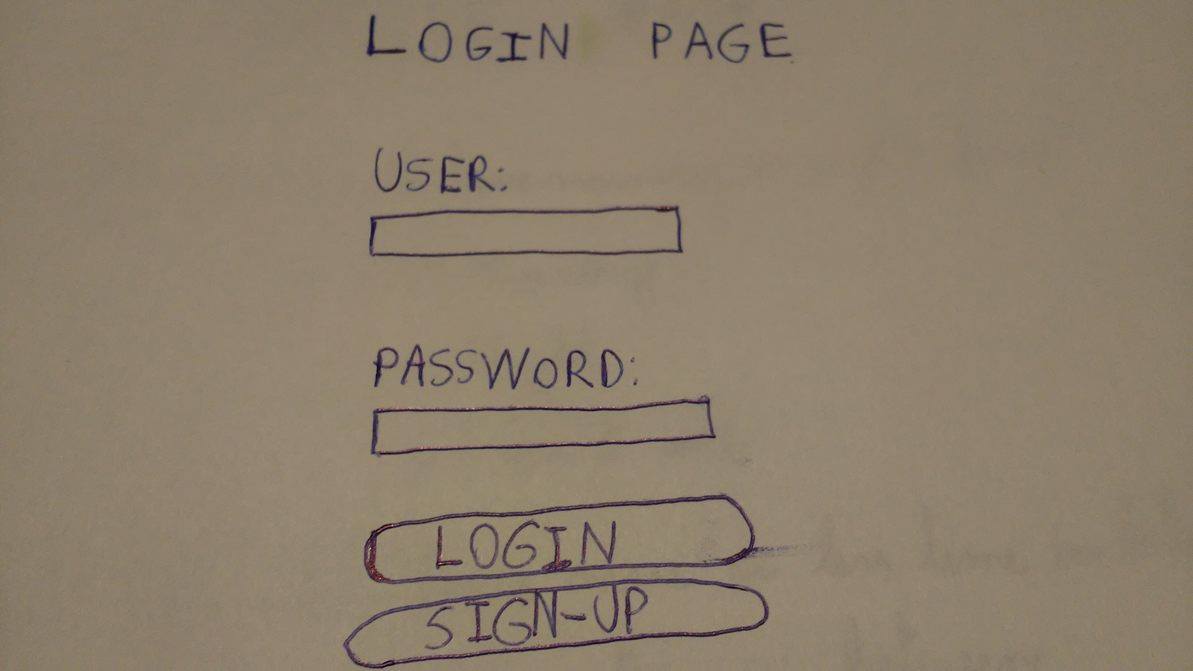 LOGIN PAGE
USER:
PASSWORD:
LOGIN
SIGN-UP